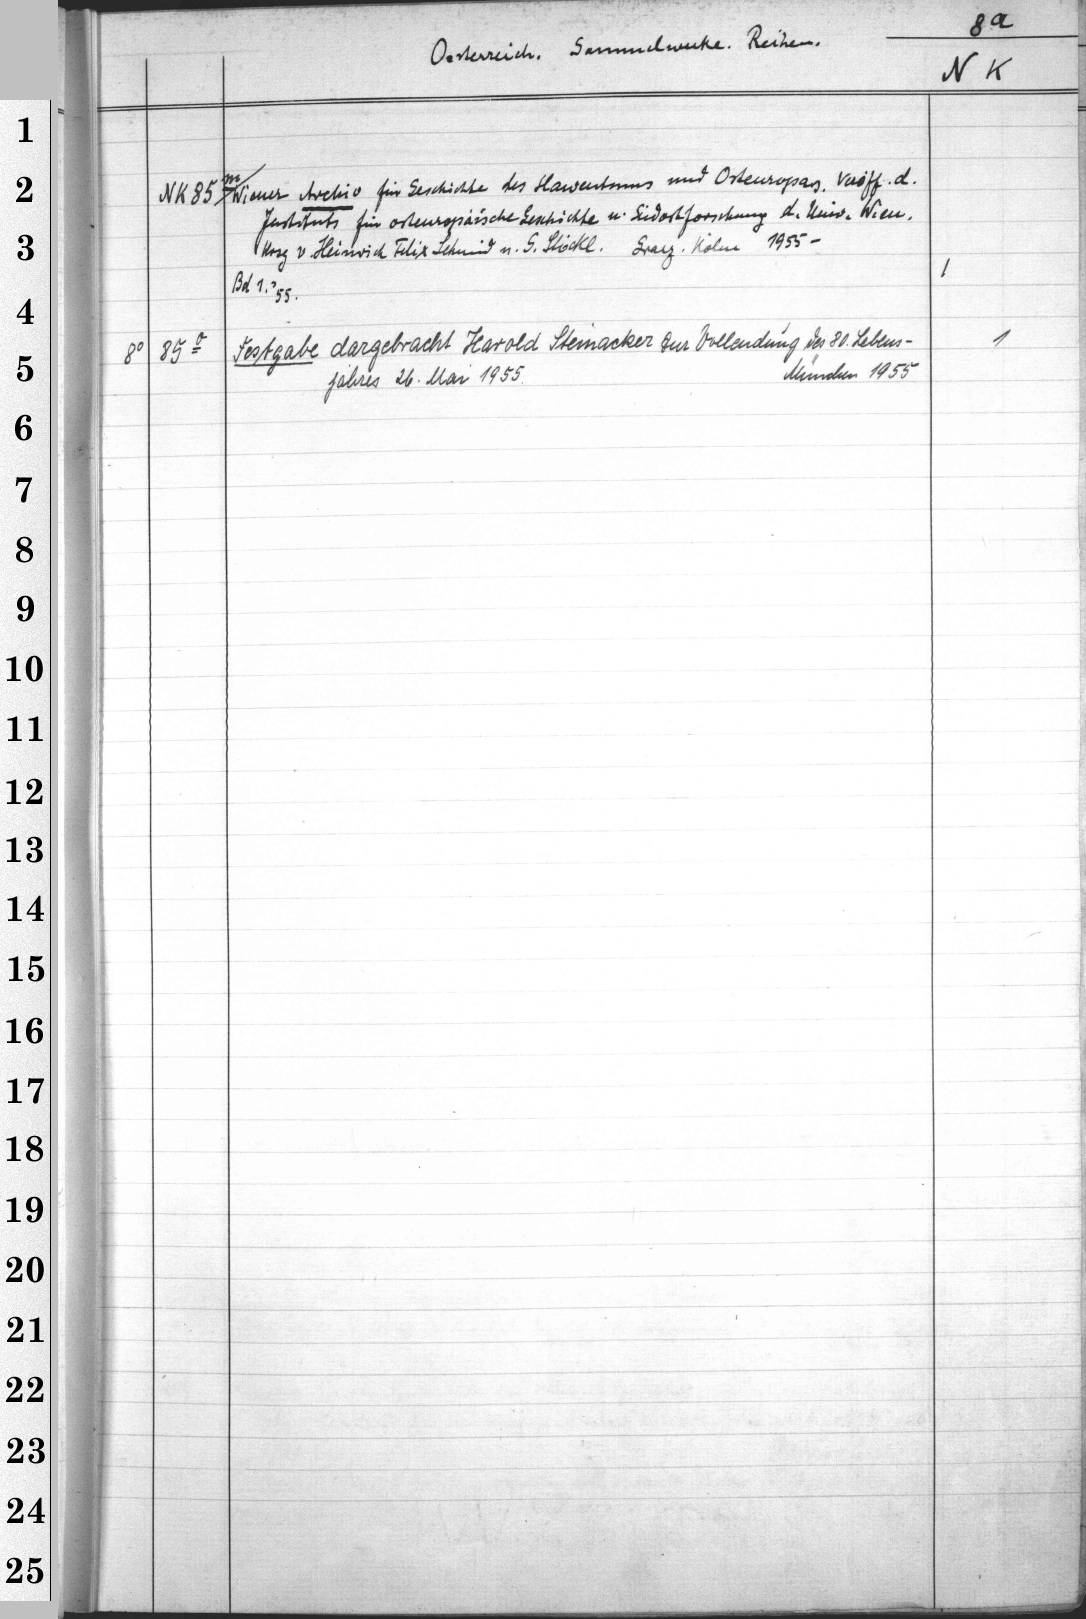 8a
Oesterreich. Sammelwerke. Reihen.
N K
NK 85 m Wiener Archiv für Geschichte des Slawentums und Osteuropas. Veröff. d.
Instituts für osteuropäische Geschichte u. Südostforschung d. Univ. Wien.
Hrsg v. Heinrich Felix Schmid u. G. Stöckl. Graz. Köln 1955 –
1
Bd 1. '55.
8° 85 o Festgabe dargebracht Harold Steinacker zur Vollendung des 80. Lebens- 1
jahres 26. Mai 1955. München 1955
1
2
3
4
5
6
7
8
9
10
11
12
13
14
15
16
17
18
19
20
21
22
23
24
25